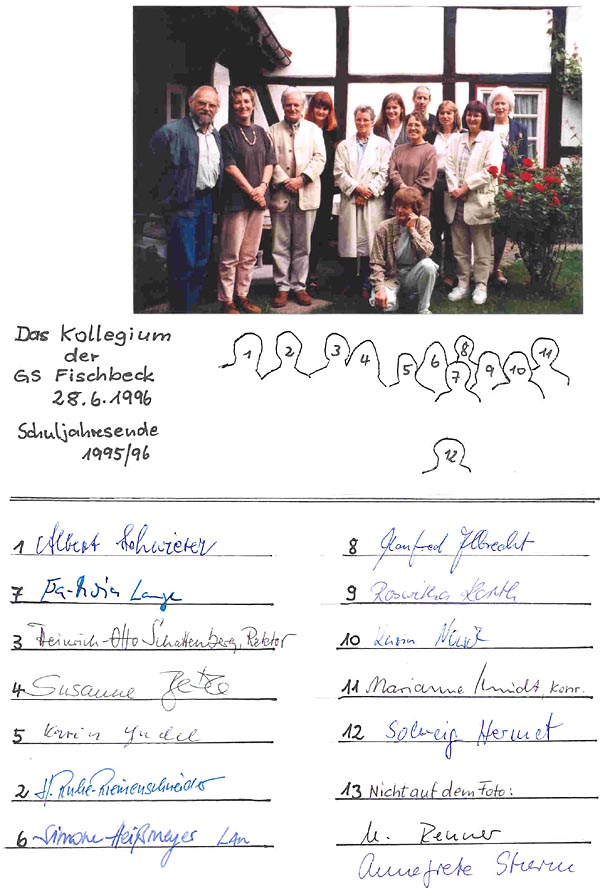 Das Kollegium
der
GS Fischbeck
28.6.1996
Schuljahresende
1995/96
1 2 3 4 5 6 8 7 9 10 11
12
1 Albert Schwieter
7 Lange
3 Heinrich-Otto Schattenberg, Rektor
4 Susanne
5 Karin
2 H. Ruhe-Riemenschneider
6 Simone Heißmeyer LAn
8 Manfred Ilbrecht
9 Roswitha
10 Karin
11 Marianne Schmidt, Konr.
12 Solveig Hermet
13 Nicht auf dem Foto:
U. Renner
Annegrete Sturm